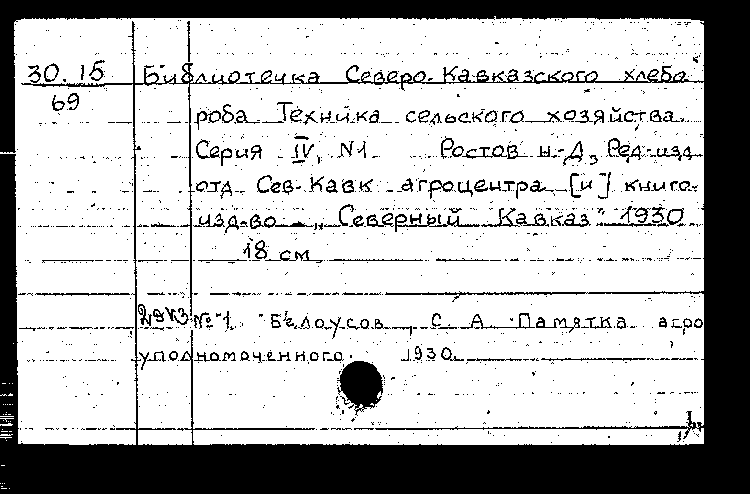 30.15 Библиотечка Северо-Кавказского хлебо
69
роба Техника сельского хозяйства.
Серия IV, N1 Ростов н-Д, Ред-изд
отд Сев-Кавк агроцентра [и] книго-
изд-во "Северный Кавказ" 1930
18 см
№1 Белоусов, С. А. Памятка агро
уполномоченного. 1930.